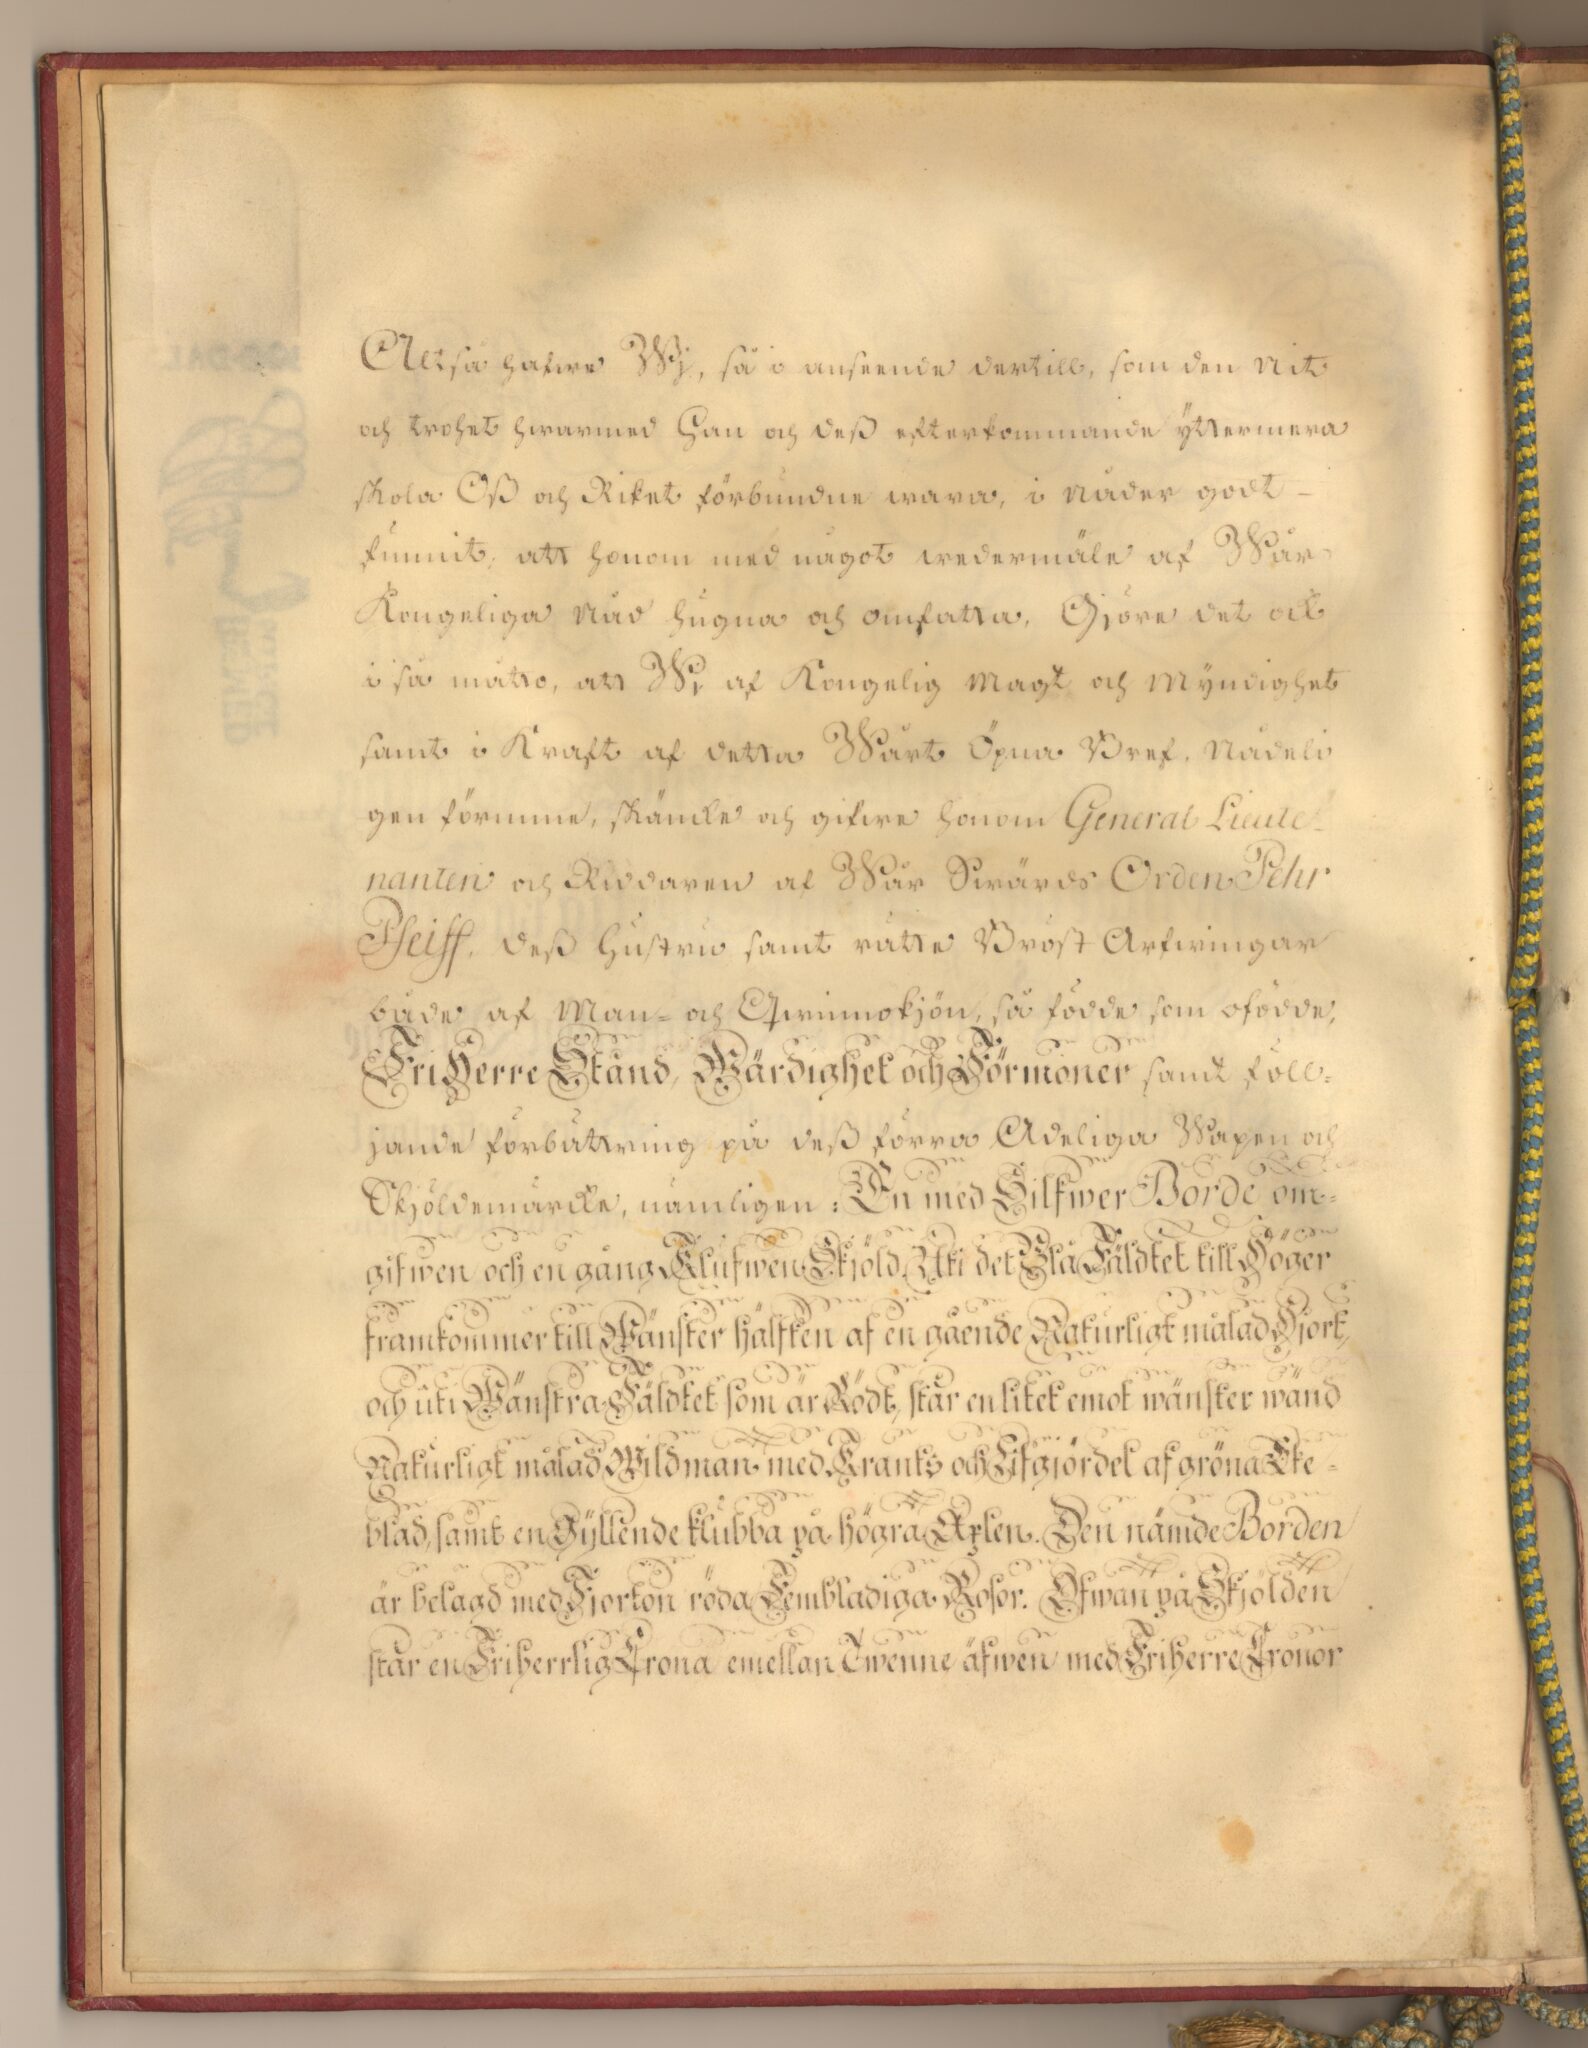 Altså hafwe Wj, så i anseende dertill, som den nit
och trohet hwarmed Han och deß efterkommande ÿttermera
skola Oß och Riket förbundne wara, i nåder godt-
funnit, att honom med något wedermäle af Wår
Kongeliga Nåd hugna och omfatta. Gjöre det ock
i så måtto, att Wj af Kongelig Magt och Myndighet
samt i Kraft af detta Wårt Öpna Bref, Nådeli
gen förunne, skäncke och gifwe honom General Lieute-
nanten och Riddaren af Wår Swärds Orden Pehr
Pfeiff, deß Hustru samt rätte Bröst Arfwingar
både af Man- och Qwinnokjön, så födde som ofödde,
Fri Herre Stånd, Wärdighet och Förmoner samt föll-
jande förbättring på deß förra Adeliga Wapen och
Skjöldemärcke, nämligen: En med Silfwer Borde om-
gifwen och en gång Klufwen Skjöld. Uti det Blå Fäldtet till Höger
framkommer till Wänster hälften af en gående Naturligt målad Hjort,
och uti Wänstra Fäldtet som är Rödt, står en litet emot wänster wänd
Naturligt målad Wildman med Krants och Lifgjördel af gröna Eke-
blad, samt en Gyllende klubba på högra Axlen. Den nämde Borden
är belagd med Fjorton röda Fembladiga Rosor. Ofwan på Skjölden
står en Friherrlig Crona emellan Twenne äfwen med Friherre Cronor